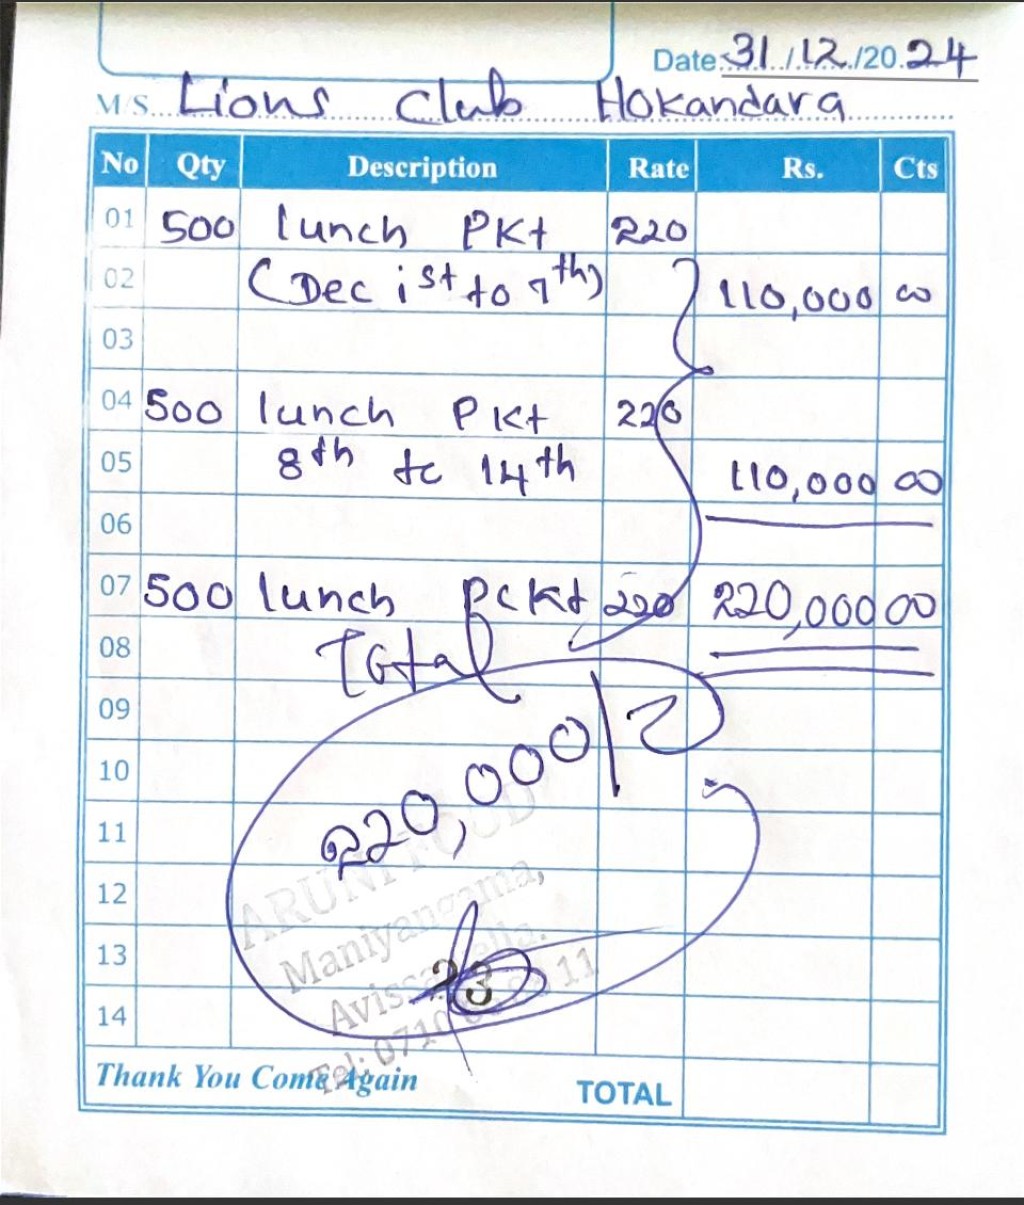 Date 31/12/2024
M/S. Lions Club Hokandara
No Qty Description Rate Rs. Cts
01 500 lunch PKt 220
02 (Dec ist to 7th) 110,000 00
03
04 500 lunch PKt 220
05 8th to 14th 110,000 00
06
07 500 lunch Pckt 220 220,000 00
08 Total
09
10 220,000/
11 ARUNI FOOD
12 Maniyangama,
13
14 23
Tel: 0710 11
Thank You Come Again TOTAL